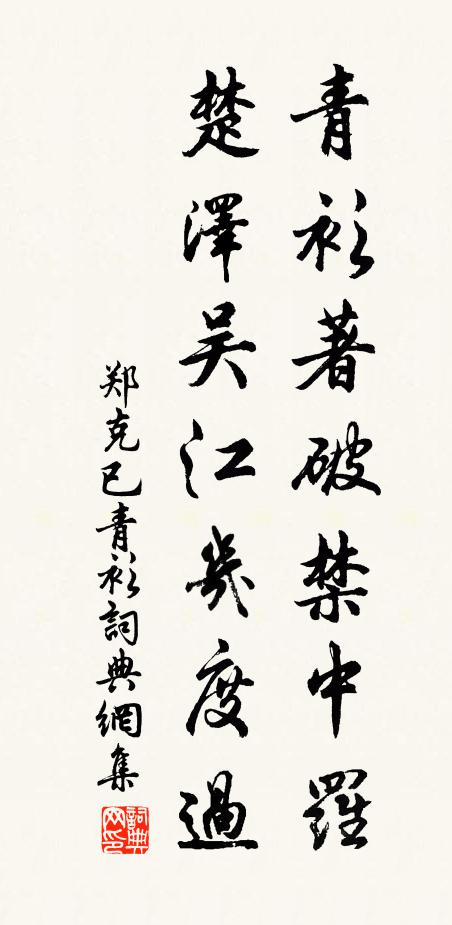 青衫著破禁中羅
楚澤吴江幾度過
郑克己青衫詞典網集
詞典网印